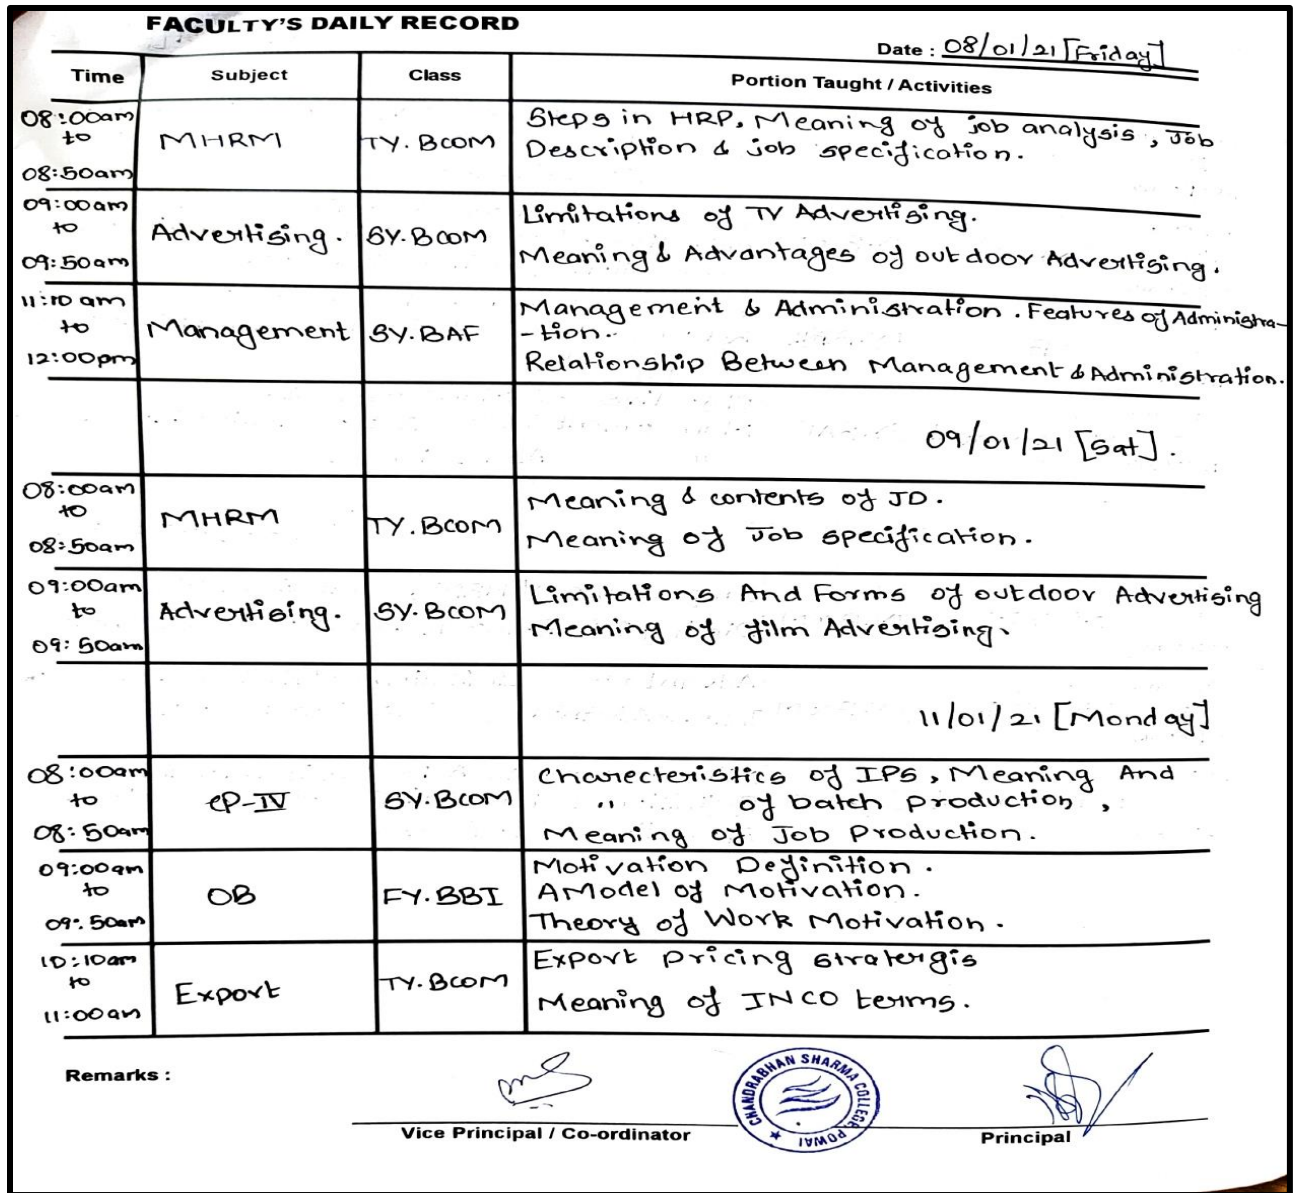 FACULTY'S DAILY RECORD
Date : 08/01/21 [Friday]
Time Subject Class Portion Taught / Activities
08:00am to 08:50am MHRM TY. BCOM Steps in HRP, Meaning of job analysis, Job
Description & job specification.
09:00am to 09:50am Advertising. SY. BCOM Limitations of TV Advertising.
Meaning & Advantages of outdoor Advertising.
11:10 am to 12:00pm Management SY. BAF Management & Administration. Features of Administra-
-tion.
Relationship Between Management & Administration.
09/01/21 [Sat].
08:00am to 08:50am MHRM TY. BCOM Meaning & contents of JD.
Meaning of Job specification.
09:00am to 09:50am Advertising. SY. BCOM Limitations And Forms of outdoor Advertising
Meaning of film Advertising.
11/01/21 [Monday]
08:00am to 08:50am EP-IV SY. BCOM Charecteristics of IPS, Meaning And
" of batch production,
Meaning of Job Production.
09:00am to 09:50am OB FY. BBI Motivation Definition.
A Model of Motivation.
Theory of Work Motivation.
10:10am to 11:00am Export TY. BCOM Export Pricing stratergis
Meaning of INCO terms.
Remarks :
CHANDRABHAN SHARMA COLLEGE, POWAI
Vice Principal / Co-ordinator Principal